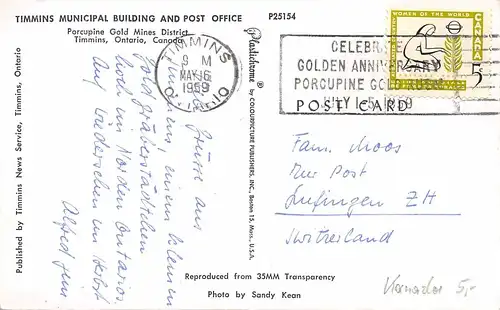 TIMMINS MUNICIPAL BUILDING AND POST OFFICE
P25154
Porcupine Gold Mines District
Timmins, Ontario, Canada
Published by Timmins News Service, Timmins, Ontario
Plastichrome ® by COLOURPICTURE PUBLISHERS, INC., Boston 15, Mass., U.S.A.
TIMMINS
9 M
MAY 16
1959
CELEBRATE
GOLDEN ANNIVERSARY
PORCUPINE GOLD
JULY 1-5 1959
WOMEN OF THE WORLD
CANADA
5
POST CARD
Grüsse aus
Timmins, einem kleinen
Goldgräberstädtchen
hoch im Norden Ontarios.
Auf Wiedersehen im Herbst
Alfred
Fam. Moos
zur Post
Lufingen ZH
Switzerland
Reproduced from 35MM Transparency
Photo by Sandy Kean
Kanada 5,-